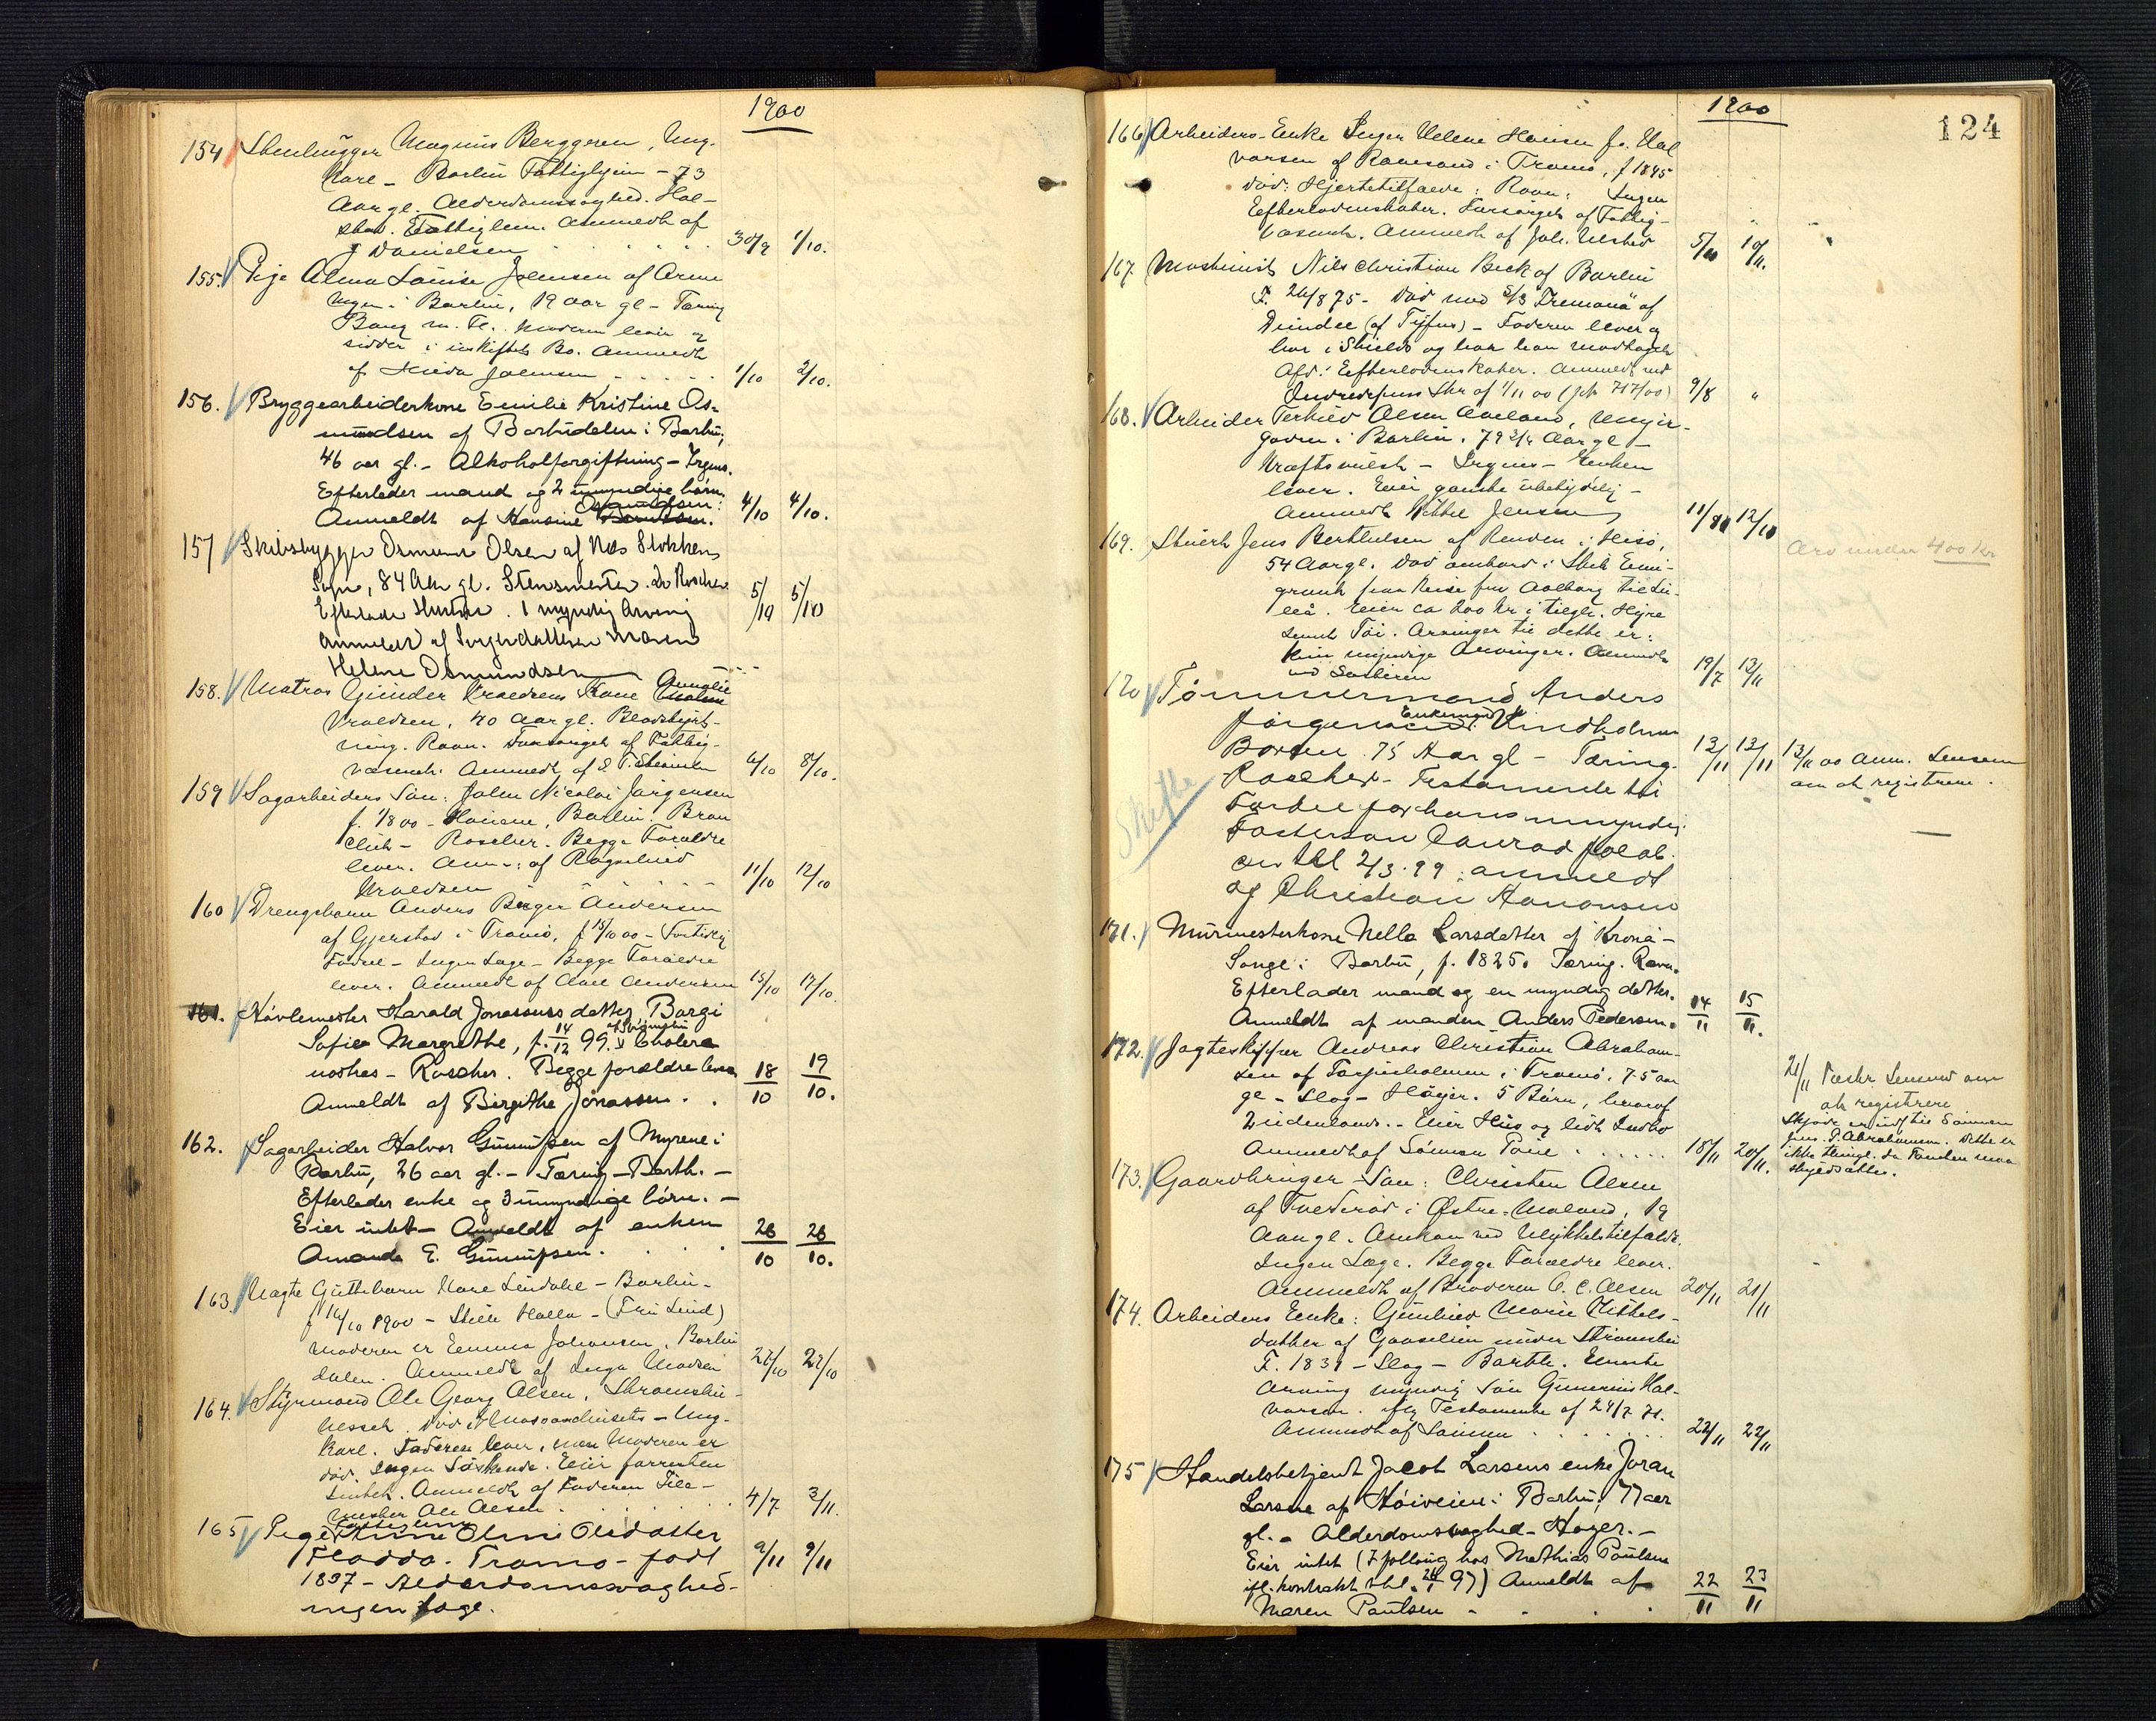 1900
154 Stenhugger Magnus Berggren, Ung-
karl - Barbu Fattighjem - 73
Aar gl. Alderdomssvaghed. Hol-
Fattiglem. Anmeldt af
J Danielsen 30/9 1/10.
155. Pige Alma Louise Johnsen af Arne
i Barbu, 19 aar gl - Tæring
Bang m. Fl. Moderen lever og
sidder i uskiftet Bo. Anmeldt
af Hilda Johnsen 1/10 2/10.
156. Bryggearbeiderkone Emilie Kristine Os-
mundsen af Barbudalen i Barbu,
46 aar gl. - Alkoholforgiftning -
Efterlader mand og 2 umyndige børn.
Osmundsen.
Anmeldt af Hansine 4/10 4/10.
157 Skibsbygger Osmund Olsen af Næs Stokken
Sogn, 84 Aar gl. Stensmerter. Dr Roscher
Efterlader Hustru. 1 myndig Arving
Anmeldt af Svigerdatteren Maren 5/10 5/10
Helene Osmundsen
158. Matros Gunder Knudsens Kone Annalie
40 Aar gl. Blodstyrt-
ning. Ravn. Forsørget af Fattig-
væsenet. Anmeldt af 6/10 8/10.
159 Sagarbeiders Søn: John Nicolai Jørgensen
f. 1/8 00 - Barbu. Bron
chit - Roscher. Begge Forældre
lever. Anm. af Ragnhild
Knudsen 11/10 12/10
160 Drengebarn Anders Birger Andersen
af Gjerstad i Tromø, f 15/10 00 - Fortidlig
Fødsel - Ingen Læge - Begge Forældre
lever. Anmeldt af Andersen 15/10 17/10.
161. Høvlemester Harald Jonassens datter Borgi
Sofie Margrethe, f. 14/12 99. Cholera
nostras - Roscher. Begge forældre lever
Anmeldt af Birgithe Jonassen. 18/10 19/10.
162. Sagarbeider Halvor Gunufsen af Myrene i
Barbu, 26 aar gl. - Tæring - Barth. -
Efterlader enke og 3 umyndige børn. -
Eier intet - Anmeldt af enken
Amanda E. Gunufsen. 26/10 26/10.
163. Uægte Guttebarn Kare Lindahl - Barbu -
f 16/10 1900 - Stille Halla - (Fru Lind)
Moderen er Emma Johansen, Barbu
dalen. Anmeldt af Inga Madsen 27/10 29/10
164. Styrmand Ole Georg Olsen, Strømsbu -
Ung-
karl. Faderen lever, men Moderen er
død. Ingen Søskende. Eier forresten
intet. Anmeldt af Faderen
Ole Olsen 4/7 3/11.
165 Pige Fattiglem Anne Oline Olsdatter
Fladda. Tromø - født 9/11 9/11
1837 - Alderdomssvaghed -
ingen Læge.
1900
124
166 Arbeiders Enke Inger Helene Hansen f. Hal
vorsen af Ravnesand i Tromø, f 1845
død: Hjertetilfælde: Ravn: Ingen
Efterladenskaber. Forsørget af Fattig-
væsenet. Anmeldt af Joh. Ulsted
167. Maskinist Nils Christian Beck af Barbu
F. 26/8 75 - Død med S/S Tremona af
Dundee (af Tyfus) - Faderen lever og
bor i Shields og har han modtaget
Afd: Efterladenskaber. Anmeldt ved
Indredepins Skr af 1/11 00 (Jn 717/00) 9/8 "
168. Arbeider Terkild Olsen Aaeland,
gaden i Barbu. 79 3/4 Aar gl -
Kræftsvulst - Irgens - Enken
lever. Eier ganske ubetydelig -
Anmeldt Kittil Jensen 12/10
169. Stuert Jens Berthelsen af Renden i Hisø, Arv under 400 kr
54 Aar gl. Død ombord i Skib Emi-
grant paa Reise fra Aalborg til Lu-
leå. Eier ca 200 kr i tilgode Hyre
samt Tøi. Arvinger til dette er:
Kun myndige Arvinger. Anmeldt
ved 19/7 13/11
170 Tømmermand Anders
Jørgensen Enkemand Lindholmen
Borsen 75 Aar gl - Tæring. 13/11 13/11 13/11 00 Anm. Lensm
Skifte Roscher - Testamente til om at registrere.
Fordel for hans umyndig.
Søstersøn Conrad Jacob.
sen thl 2/3.99. anmeldt
af Christian Aanonsen
171. Murmesterkone Nella Larsdatter af Krona -
Songe i Barbu, f. 1825. Tæring. Ravn.
Efterlader mand og en myndig datter.
Anmeldt af manden Anders Pedersen. 14/11 15/11.
172. Jagteskipper Andreas Christian Abraham-
sen af Torjusholmen i Tromø, 75 aar
gl - Slag - Høyer. 5 Børn, hvoraf
2 udenlands. - Eier Hus og lidt Indbo
Anmeldt af Sønnen 18/11 20/11.
21/11 Lensmd om
at registrere
Skjøde er udst til Sønnen
Jens P. Abrahamsen. Dette er
ikke thingl. da Panden maa
173. Gaardbruger Søn: Christen Olsen
af Tvederød i Østre-Moland, 19
Aar gl. Omkom ved Ulykkestilfælde.
Ingen Læge. Begge Forældre lever.
Anmeldt af Broderen O. C. Olsen 20/11 21/11
174. Arbeiders Enke: Gunhild Marie Kittels-
datter af Gaaselien under Strømsbu
F. 1831 - Slag - Barth. Eneste
Arving myndig Søn Gunerius Hal-
vorsen. Testamente af 24/7 71.
Anmeldt af Sønnen 22/11 22/11
175 Handelsbetjent Jacob Larsens enke Joran
Larsen af Høiveien i Barbu. 77 aar
gl. - Alderdomssvaghed - Høyer. -
Eier intet (I følling hos Mathias Paulsen
ifl. kontrakt thl. 97) Anmeldt af
Maren Paulsen 22/11 23/11